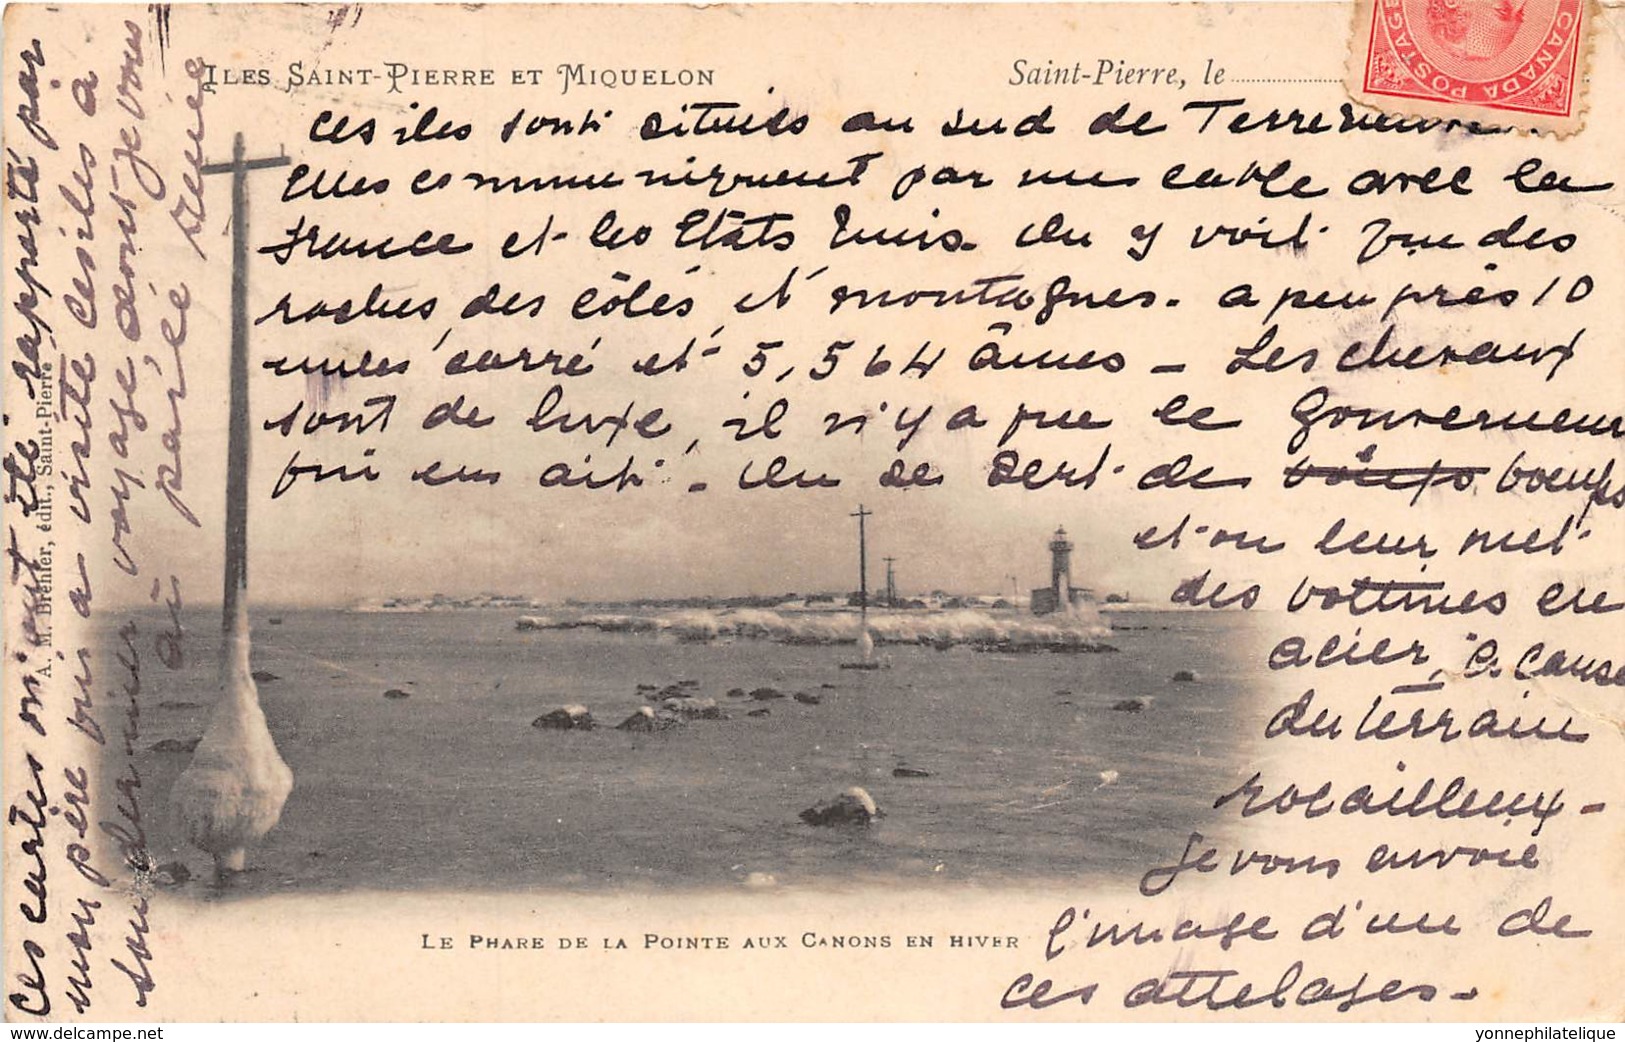 ILES SAINT-PIERRE ET MIQUELON
Saint-Pierre, le
CANADA POSTAGE
Ces iles sont situées au sud de Terreneuve.
Elles communiquent par un cable avec la
France et les Etats Unis. On y voit que des
roches, des côtés, et montagnes. a peu près 10
miles carré et 5,564 âmes - Les chevaux
sont de luxe, il n'y a que le Gouverneur
qui en ait. - On se sert de boeufs
et on leur met
des bottines en
acier, à cause
du terrain
rocailleux -
Je vous envoie
l'image d'un de
ces attelages -
LE PHARE DE LA POINTE AUX CANONS EN HIVER
A. M. Bréhier, édit., Saint-Pierre
Ces cartes m'ont été rapporté par
mon père qui a visité ces iles à
son dernier voyage dont je vous
ai parlé
delcampe.net
yonnephilatelique